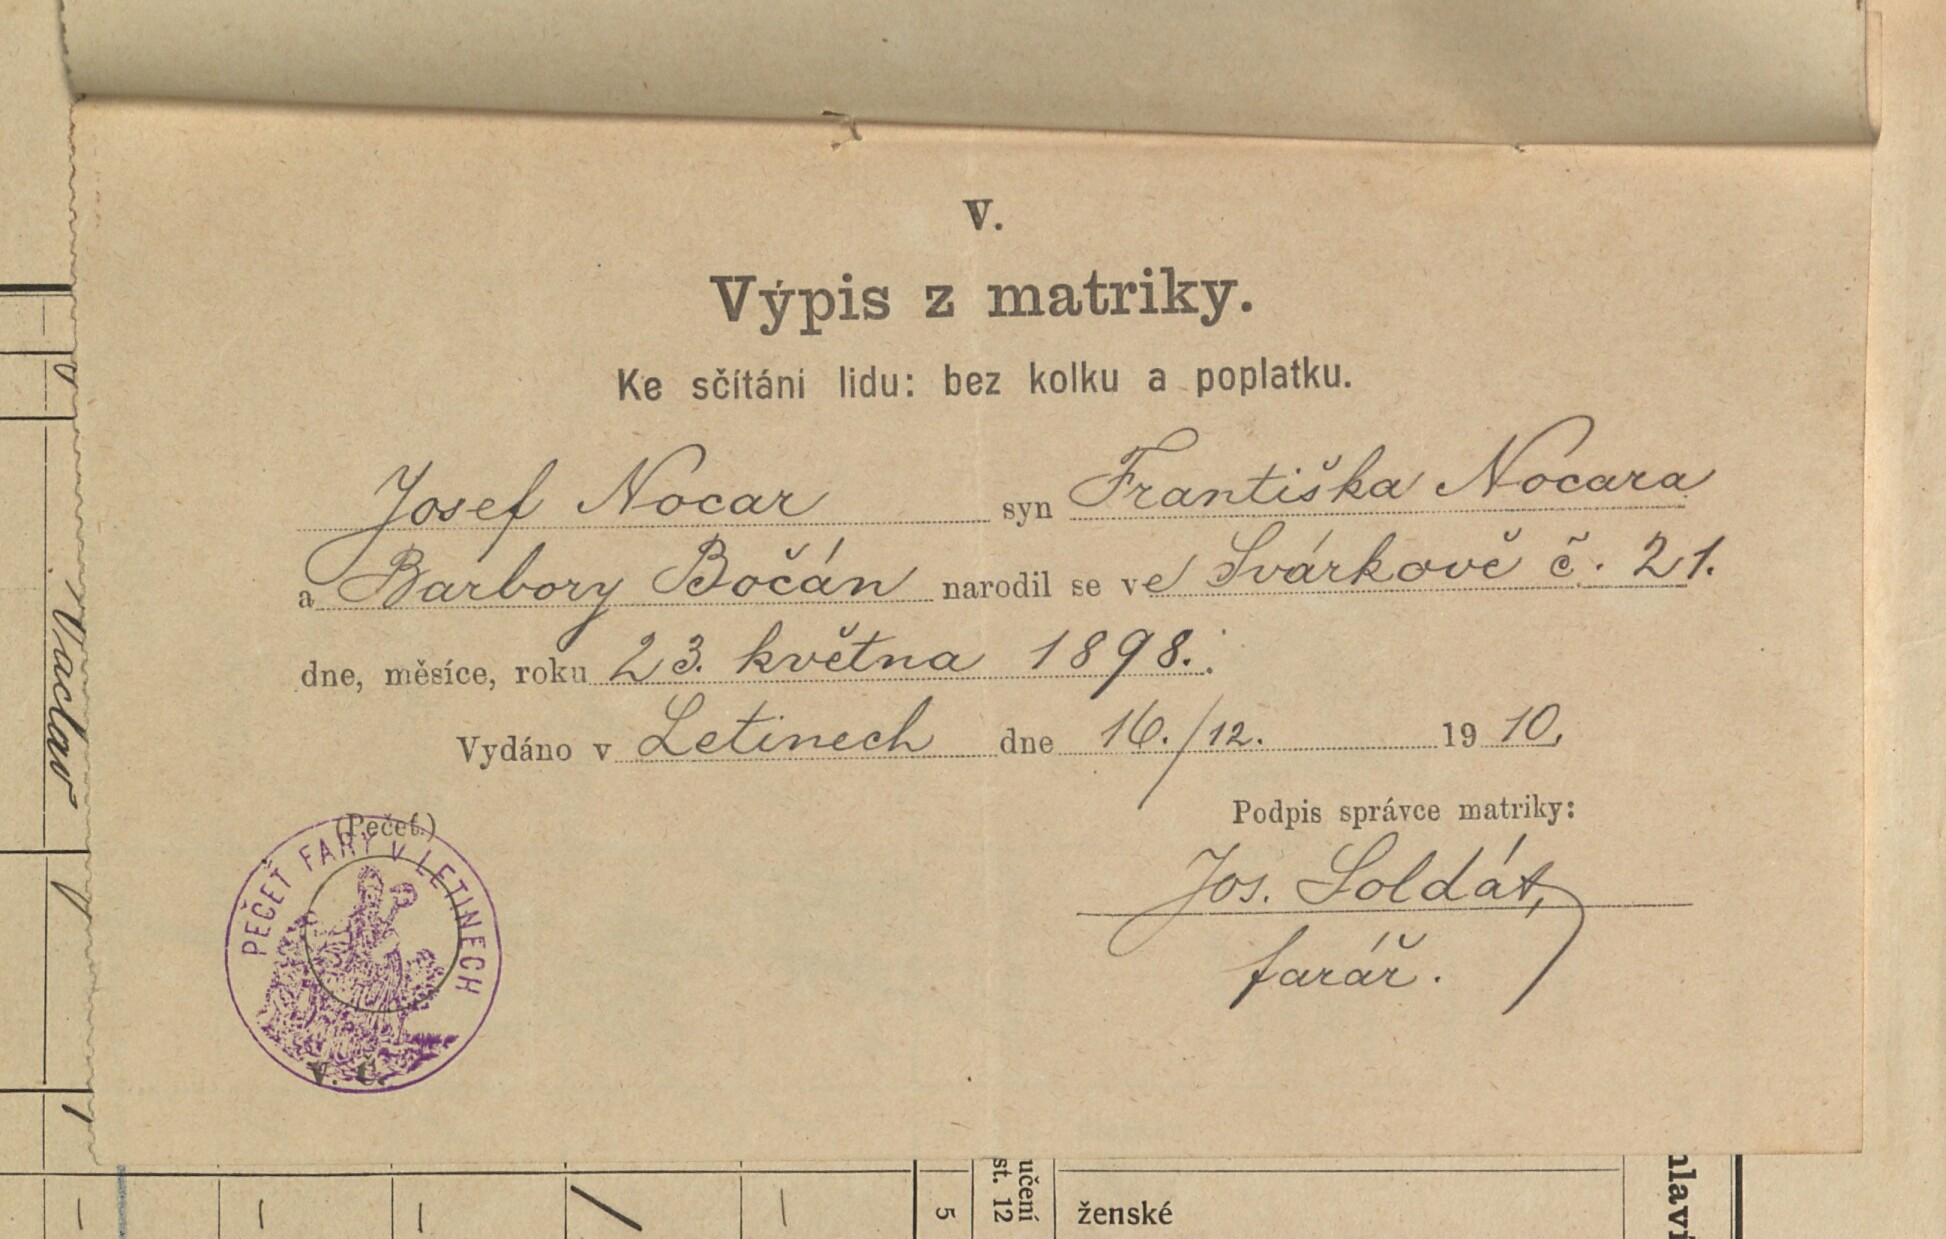 V.
Výpis z matriky.
Ke sčítání lidu: bez kolku a poplatku.
Josef Nocar syn Františka Nocara
a Barbory Bočán narodil se ve Svárkově č. 21.
dne, měsíce, roku 23. května 1898.
Vydáno v Letinech dne 16./12. 1910.
(Pečeť.)
PEČEŤ FARY V LETINECH
V. Č.
Podpis správce matriky:
Jos. Soldát,
farář.
Václav
5
učení
st. 12
ženské
hlaví